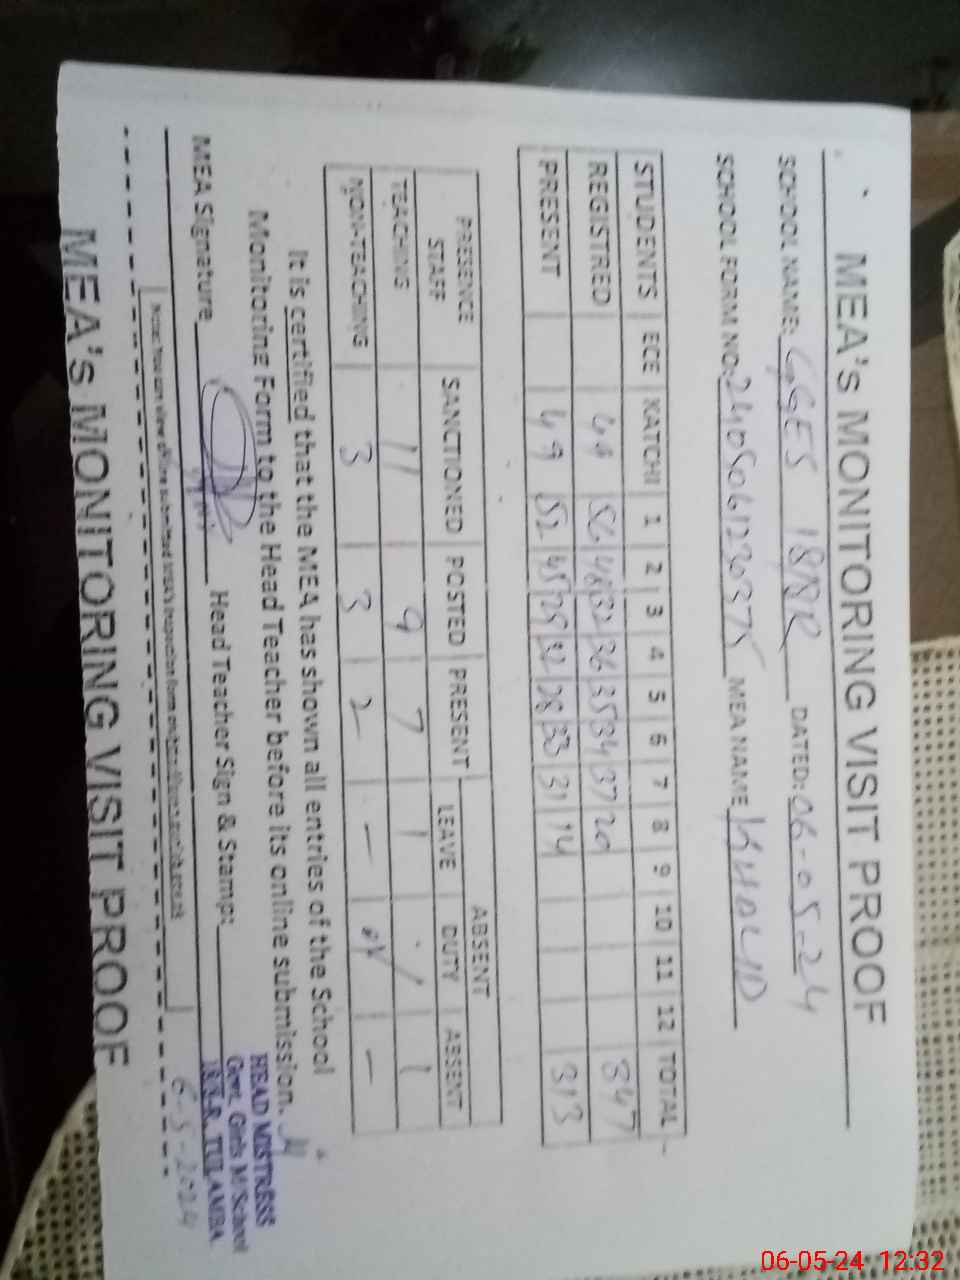 MEA's MONITORING VISIT PROOF
SCHOOL NAME: GGES 18/8R DATED: 06-05-24
SCHOOL FORM NO: MEA NAME KHALID
STUDENTS ECE KATCHI 1 2 3 4 5 6 7 8 9 10 11 12 TOTAL
REGISTRED 49 56 48 32 36 35 34 37 20 347
PRESENT 49 52 45 29 32 28 33 31 14 313
PRESENCE STAFF SANCTIONED POSTED PRESENT ABSENT
LEAVE DUTY ABSENT
TEACHING 11 9 7 1 1 1
NON-TEACHING 3 3 2 -
It is certified that the MEA has shown all entries of the School
Monitoring Form to the Head Teacher before its online submission.
MEA Signature Head Teacher Sign & Stamp:
HEAD MISTRESS
Govt. Girls M/School
TULAMBA
6-5-2024
MEA's MONITORING VISIT PROOF
06-05-24 12:32